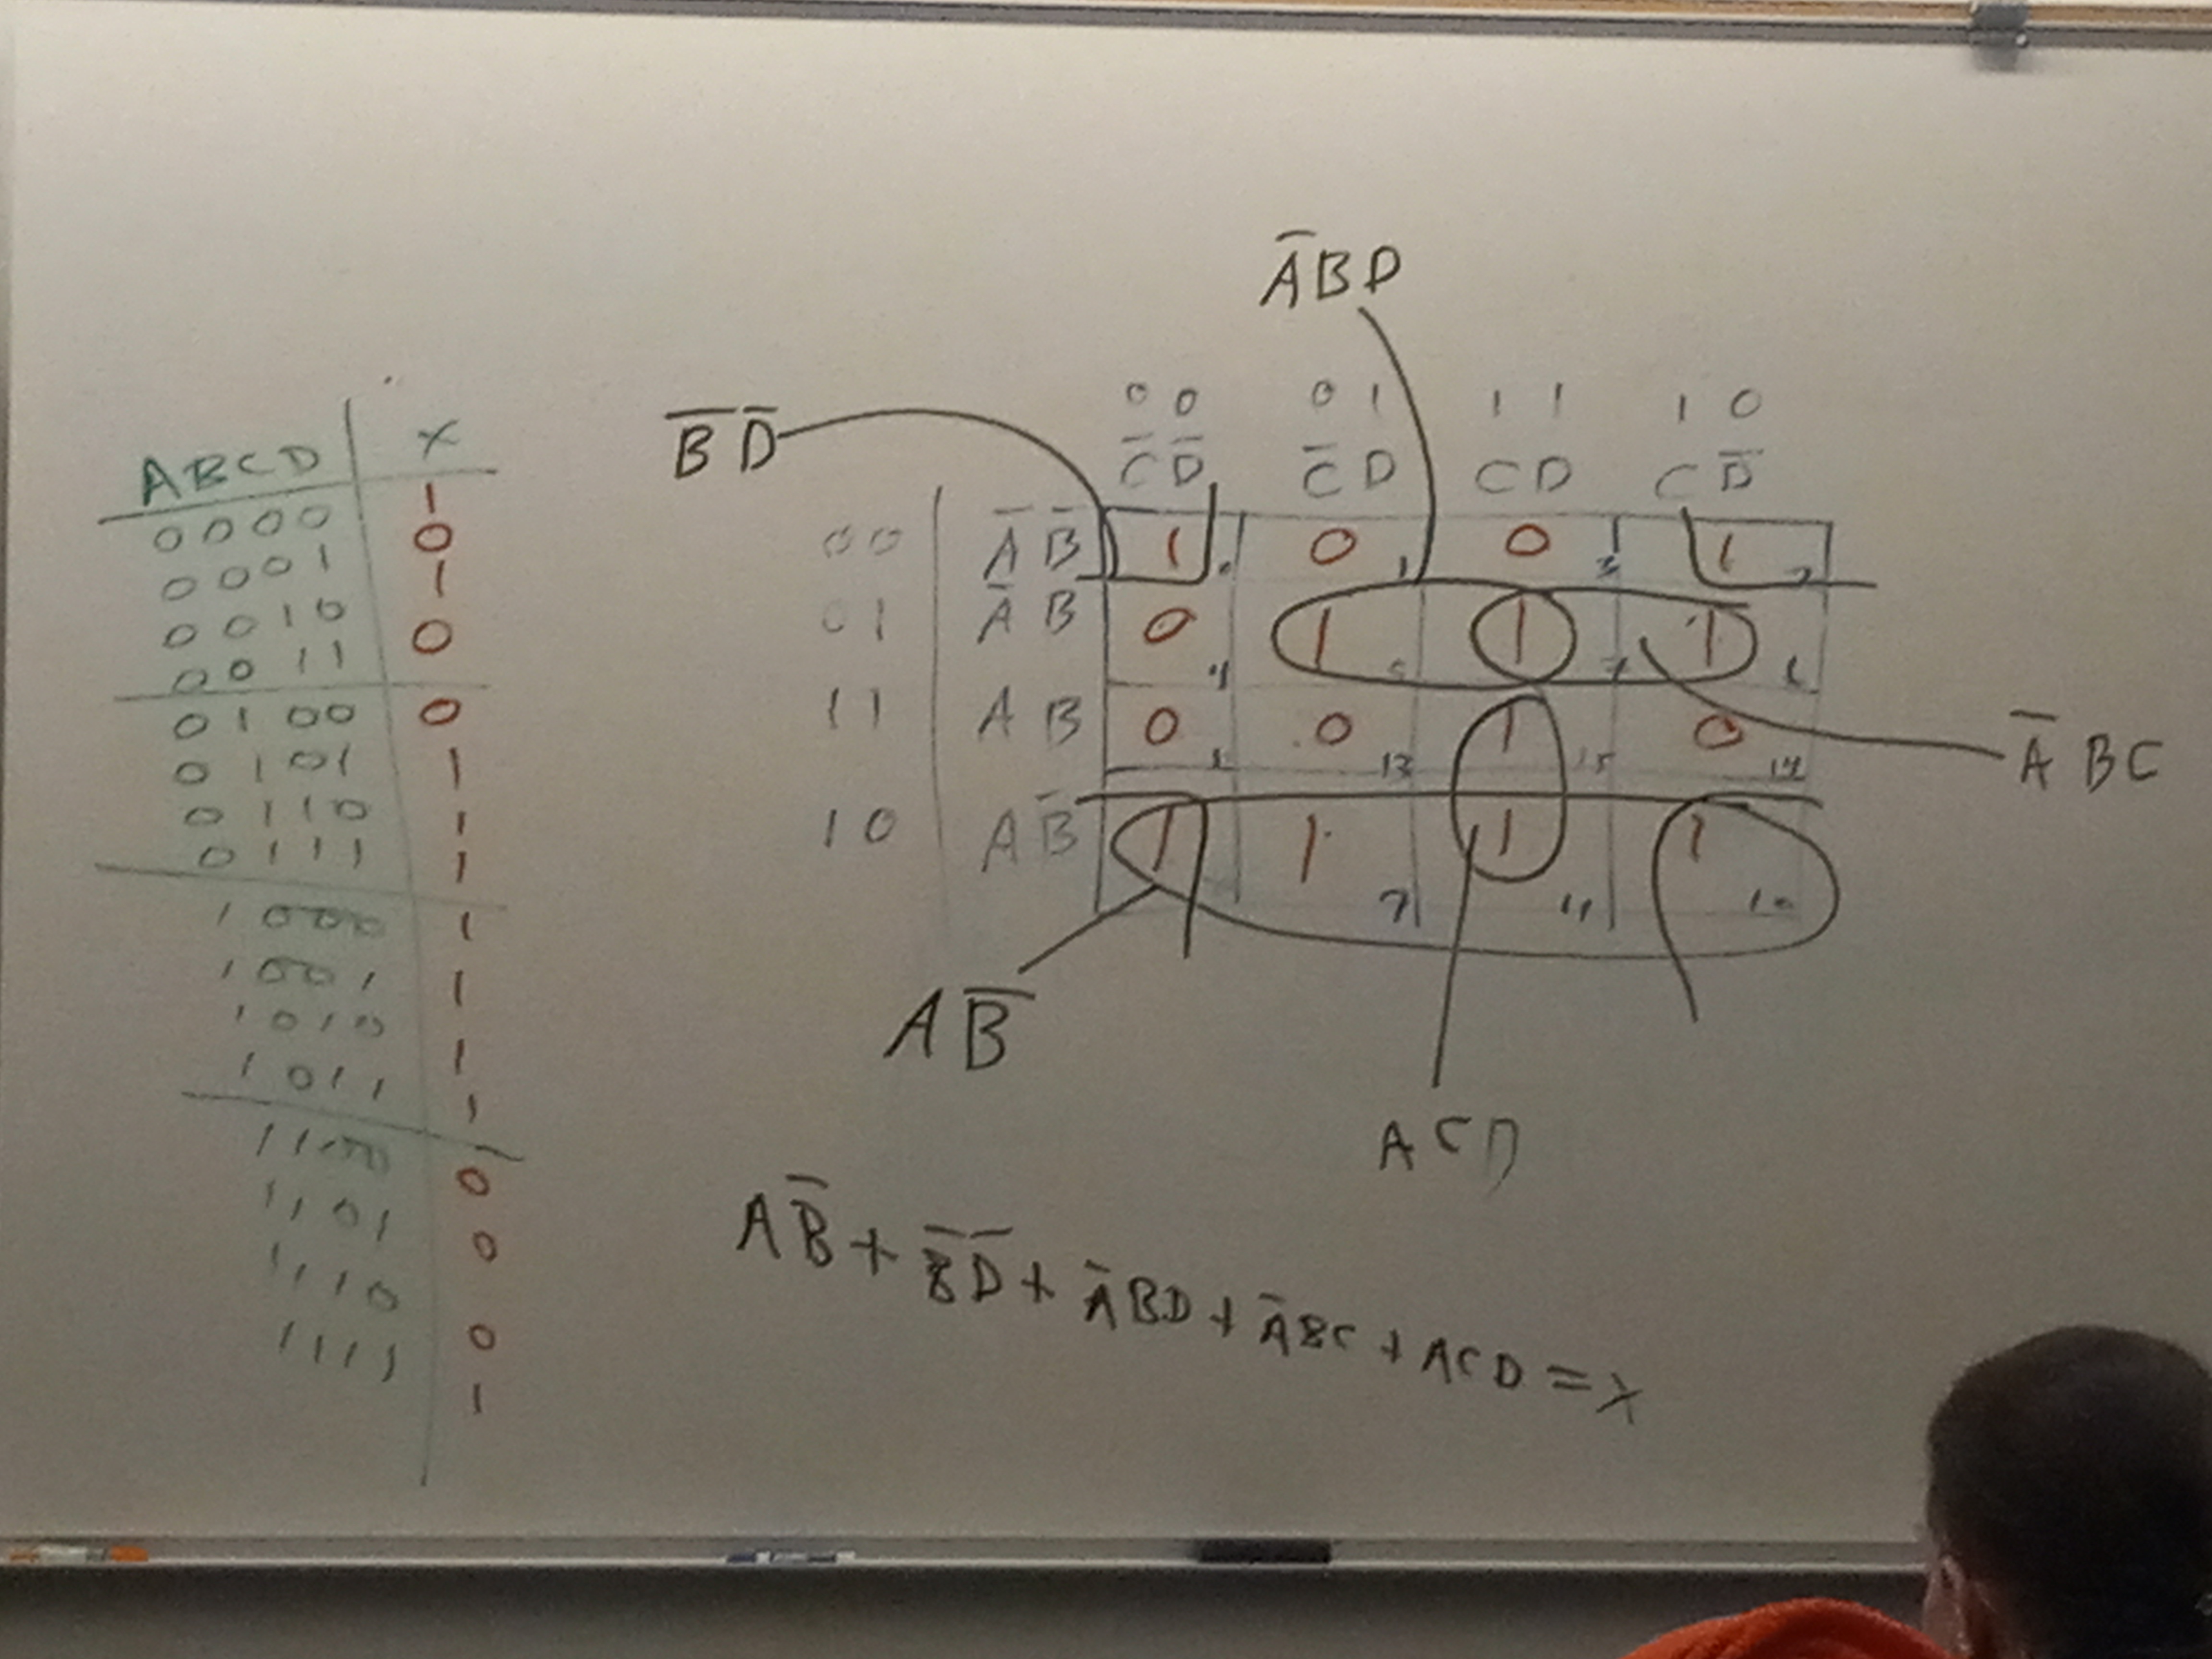 ABCD X
0000 1
0001 0
0010 1
0011 0
0100 0
0101 1
0110 1
0111 1
1000 1
1001 1
1010 1
1011 1
1100 0
1101 0
1110 0
1111 1
A̅BD
B̅ D̅
00 01 11 10
C̅D̅ C̅D CD CD̅
00 A̅B̅ 1 0 0 1 3 1
01 A̅B 0 4 1 1 7 1 6
11 AB 0 0 13 1 15 0 14
10 AB̅ 1 1 1 11 1 10
A̅BC
AB̅
ACD
AB̅ + B̅D̅ + A̅BD + A̅BC + ACD = X